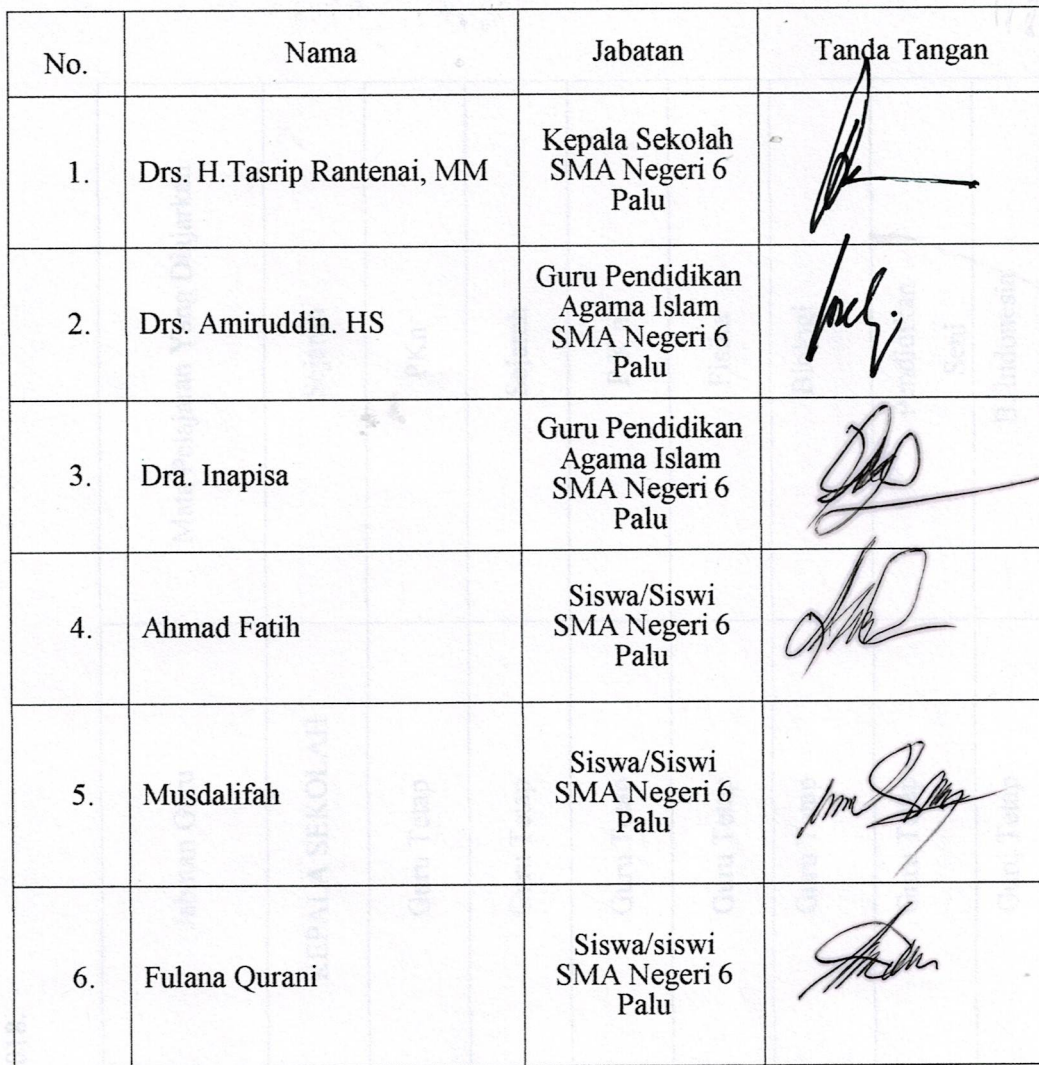 No. Nama Jabatan Tanda Tangan
1. Drs. H.Tasrip Rantenai, MM Kepala Sekolah
SMA Negeri 6
Palu
2. Drs. Amiruddin. HS Guru Pendidikan
Agama Islam
SMA Negeri 6
Palu
3. Dra. Inapisa Guru Pendidikan
Agama Islam
SMA Negeri 6
Palu
4. Ahmad Fatih Siswa/Siswi
SMA Negeri 6
Palu
5. Musdalifah Siswa/Siswi
SMA Negeri 6
Palu
6. Fulana Qurani Siswa/siswi
SMA Negeri 6
Palu